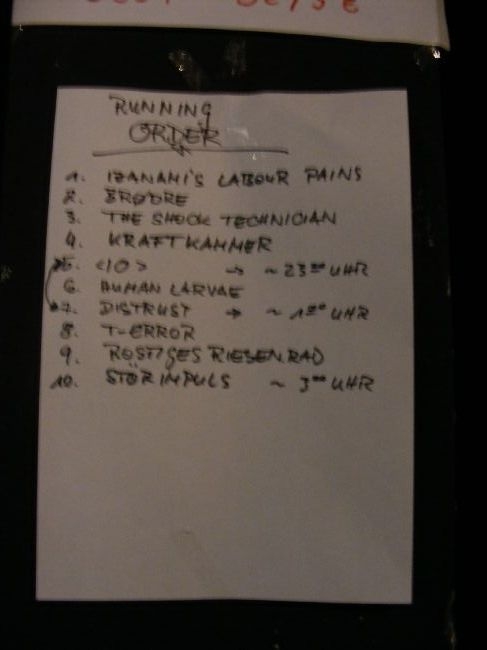 RUNNING
ORDER
1. IZANAMI'S LABOUR PAINS
2. BRØDRE
3. THE SHOCK TECHNICIAN
4. KRAFTKAMMER
5. <IO> → ~ 23⁰⁰ UHR
6. HUMAN LARVAE
7. DISTRUST → ~ 1⁰⁰ UHR
8. T-ERROR
9. ROSTIGES RIESENRAD
10. STÖRIMPULS ~ 3⁰⁰ UHR